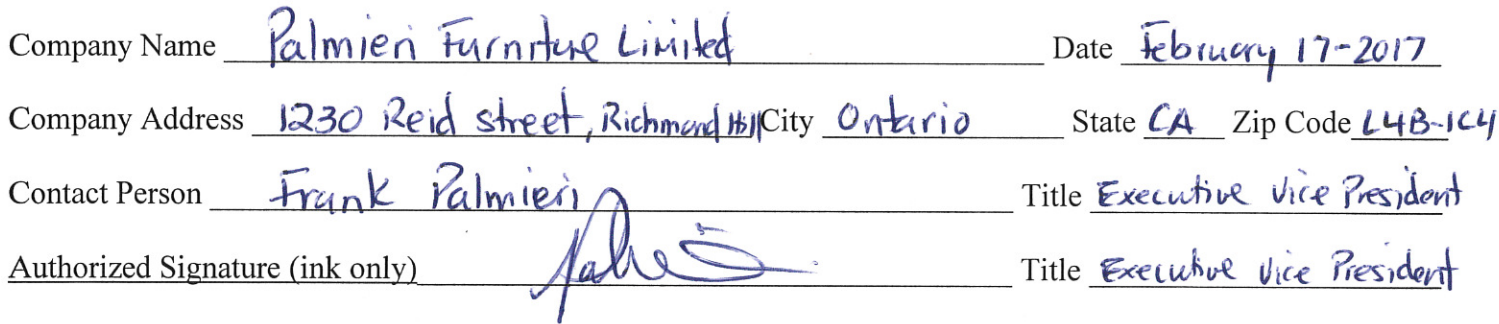 Company Name Palmieri Furniture Limited Date February 17-2017
Company Address 1230 Reid street, Richmond Hill City Ontario State CA Zip Code L4B-1C4
Contact Person Frank Palmieri Title Executive Vice President
Authorized Signature (ink only) Title Executive Vice President